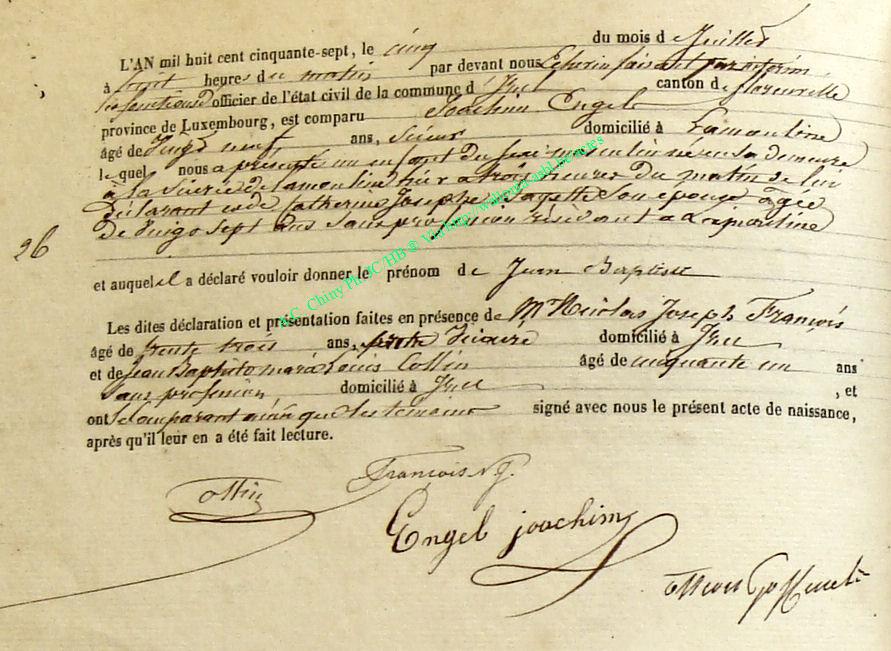 L'AN mil huit cent cinquante-sept, le cinq du mois de Juillet
à huit heures du matin par devant nous Echevin faisant par interim
les fonctions d'officier de l'état civil de la commune d'Izel canton de florenville
province de Luxembourg, est comparu Joachim Engel
âgé de vingt neuf ans, Scieur domicilié à Lamouline
lequel nous a présenté un enfant du sexe masculin né en sa demeure
à la Scierie de lamouline hier à trois heures du matin de lui
déclarant et de Catherine Josephe son épouse âgée
de vingt sept ans sans profession résidant à Lamouline
26
et auquel il a déclaré vouloir donner le prénom de Jean Baptiste
Les dites déclaration et présentation faites en présence de Mr Nicolas Joseph François
âgé de trente trois ans, vicaire domicilié à Izel
et de Jean Baptiste Louis Collin âgé de cinquante un ans
sans profession domicilié à Izel , et
ont le comparant ainsi que les temoins signé avec nous le présent acte de naissance,
après qu'il leur en a été fait lecture.
François N. J.
Collin
Engel joachim